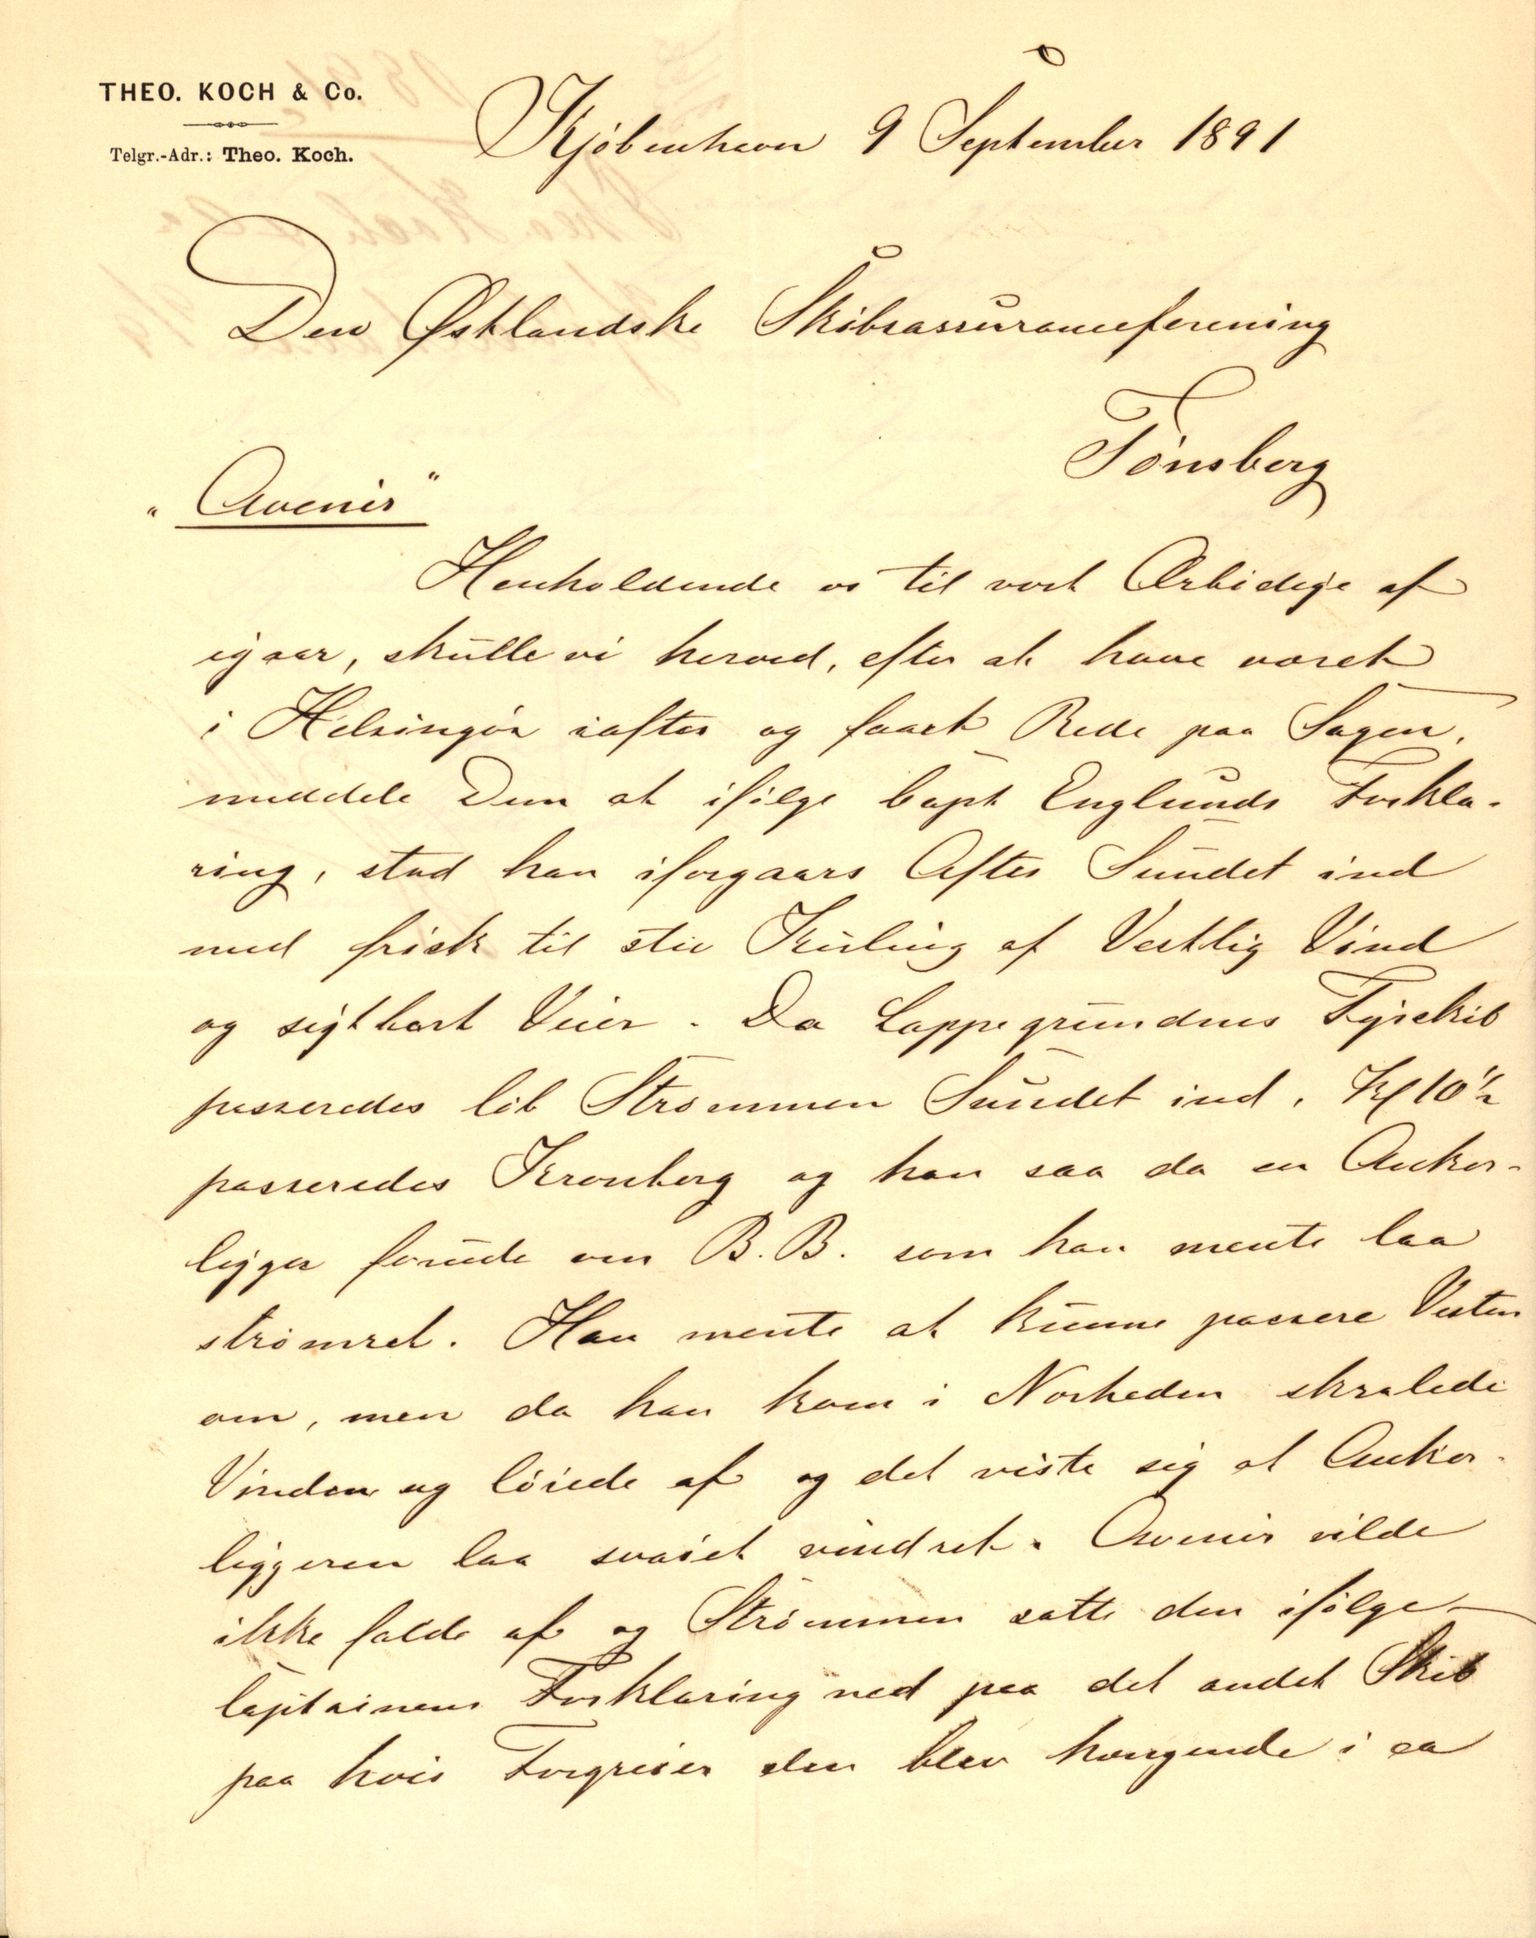 THEO. KOCH & Co.
Telgr.-Adr.: Theo. Koch.
Kjöbenhavn 9 September 1891
Den Østlandske Skibsassuranceforening
Tönsberg
"Avenir"
Henholdende os til vort Ærbödige af
igaar, skulle vi herved, efter at have været
i Helsingör iaftes og faaet Rede paa Sagen,
meddele Dem at ifölge Capt Englunds Forkla-
ring, stod han iforgaars Aftes Sundet ind
med frisk til stiv Kuling af Vestlig Vind
og sigtbart Veir. Da Lappegrundens Fyrskib
passeredes löb Strömmen Sundet ind. Kl 10½
passeredes Kronborg og han saa da en Anker-
ligger forude om B.B. som han mente laa
strömret. Han mente at kunne passere Vesten
om, men da han kom i Nærheden skralede
Vinden og löiede af og det viste sig at Anker-
liggeren laa svaiet vindret. Avenir vilde
ikke falde af og Strömmen satte den ifölge
Capitainens Forklaring ned paa det andet Skib
paa hvis Forgreier den blev hængende i ca